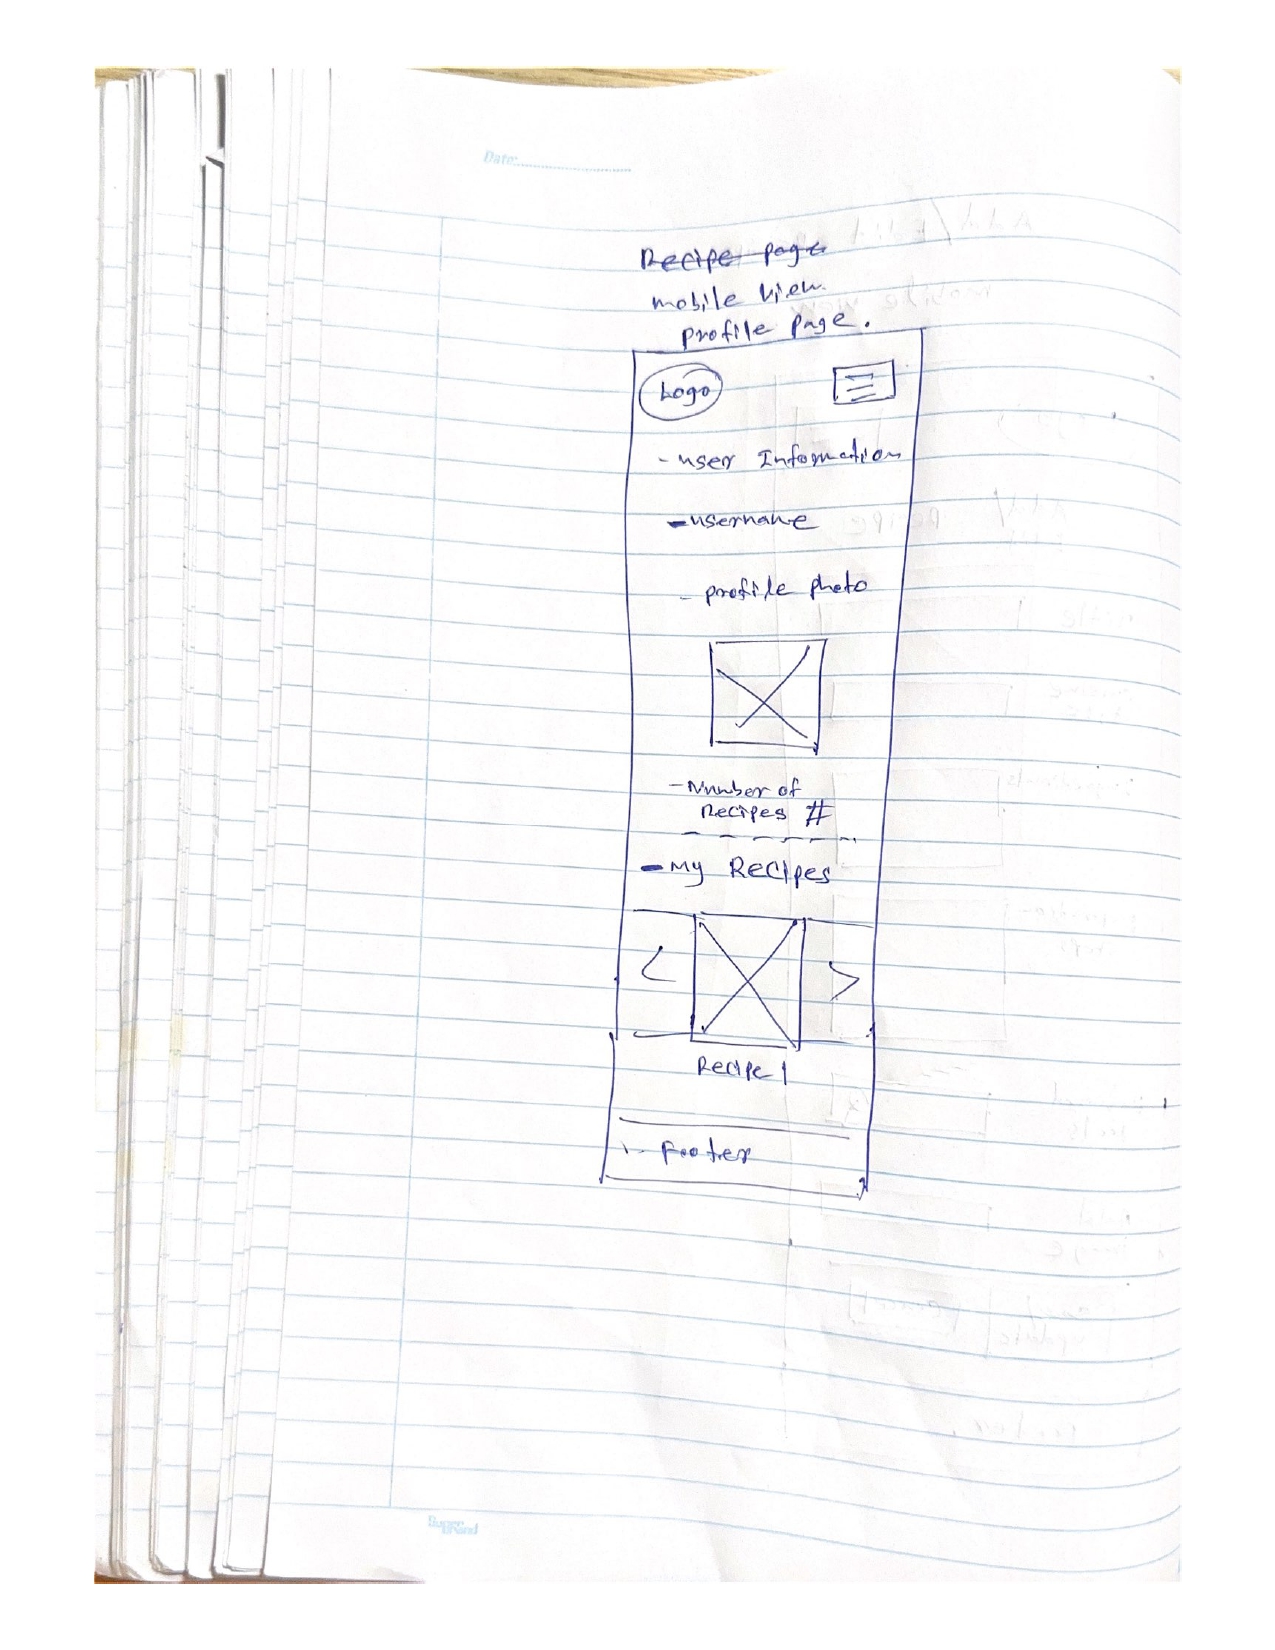 Date:
Recipe page
mobile view
profile page.
Logo
- user Information
- username
- profile photo
- Number of
Recipes #
- My Recipes
< >
Recipe 1
- Footer